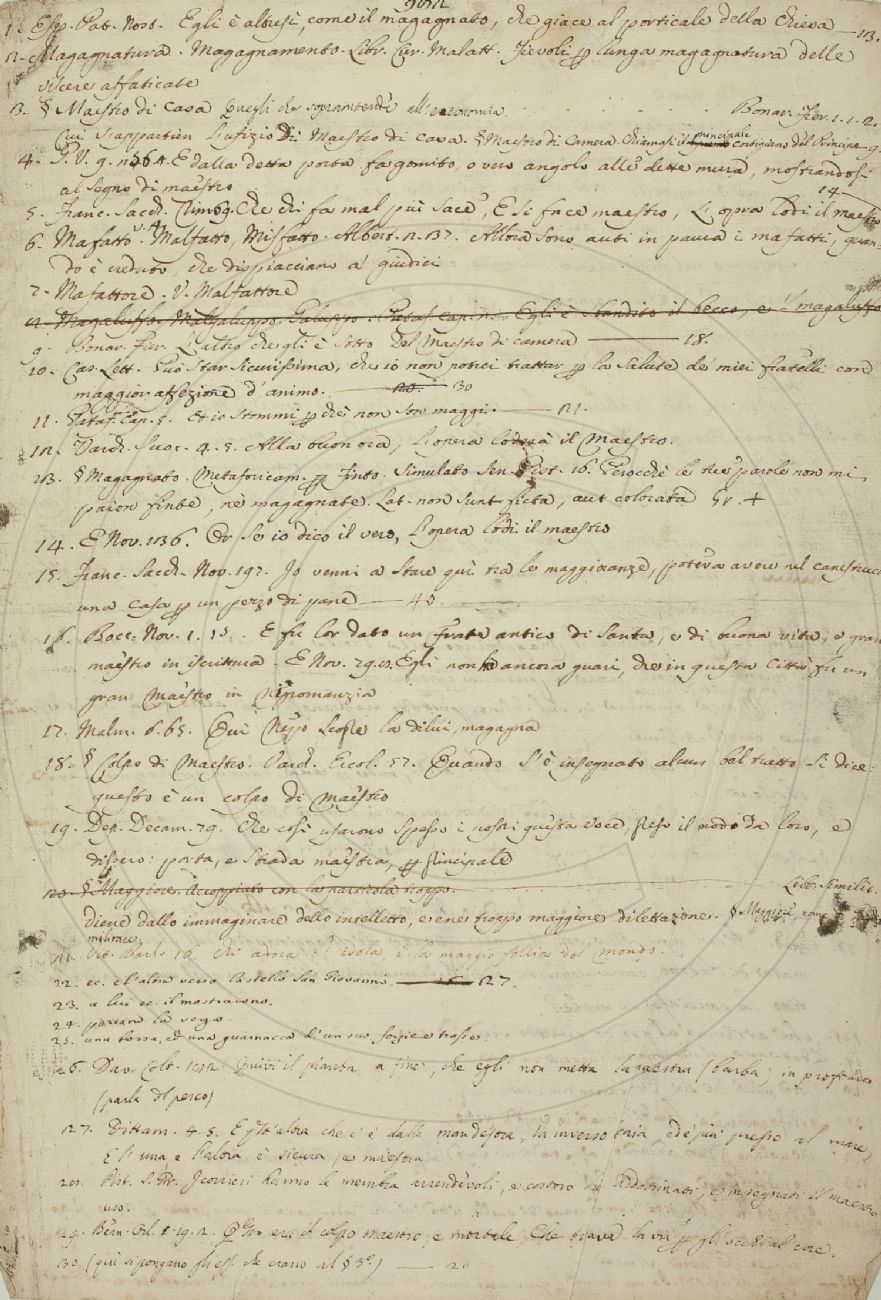 1. Esp. Pat. Nost. Egli è altresì, come il magagnato, che giace al porticale della chiesa — 13.
2. Magagnatura. Magagnamento. Libr. Cur. Malatt. Fievoli p lunga magagnatura delle
viscere affaticate
3. § Maestro di casa Quegli che soprantende all'economia Bonar. Fier. 1. 1. 2.
Cui s'appartien l'ufizio di Maestro di casa. § Maestro di Camera. Chiamasi il principale cortigiano del Principe 9.
4. G. V. 9. E dalla detta porta fa gomito, o vero angolo alle dette mura, mostrandosi
al segno di maestro 14
5. Franc. Sacch. Che chi fa mal può sace, E si face maestro, L'opra lodi il maestro
6. Mafatto V. A. Malfatto, Misfatto. Albert. 2. 137. Allora sono auti in paura i mafatti, quan-
do è creduto, che dispiacciano a' giudici
7. Mafattore. V. Malfattore
Magaluffo. Egli è sbandito il becco, e il magaluffo
9. Bonar. Fier. L'altro che gli è sotto Del Maestro di camera — 18.
10. Cas. Lett. Può star sicurissima, che io non potrei trattar p la salute de' miei fratelli con
maggior affezione d'animo. — 30
11. Pataff. Cap. 5. Et io stommi p che non son maggi. — 21.
12. Varch. Suoc. 4. 5. Alla buon ora, L'opera loderà il Maestro.
13. § Magagnato. Metaforicam. p Finto. Simulato Sen. Pist. 16. Perocchè le tue parole non mi
paion finte, nè magagnate. Lat. non sunt ficta, aut colorata Gr. +
14. E Nov. 136. Or se io dico il vero, L'opera lodi il maestro
15. Franc. Sacch. Nov. 197. Io venni a stare quì tra le maggioranze, poteva avere nel canestruccio
una casa p un pezzo di pane
16. Bocc. Nov. 1. 15. E fu lor dato un frate antico di santa, e di buona vita, e gran
maestro in iscrittura. E Nov. Egli non ha ancora guari, che in questa città fu un
gran Maestro in Nigromanzia
17. Malm. 6. 65. Quì Neppo scopre la di lui magagna
18. § Colpo di Maestro. Varch. Ercol. 57. Quando s'è insegnato alcun bel tratto si dice:
questo è un colpo di Maestro
19. Dep. Decam. 79. Che così usarono spesso i nostri questa voce, preso il modo da loro, e
dissero: porta, e strada maestra, p principale
20. § Maggiore. Accoppiato con la particola troppo. Libr. Similit.
Viene dallo immaginare dello intelletto, e ène troppo maggiore dilettazione. § Maggiore, nome
militare.
21. Vit. Barl. 18. Chi adora l'idola, è la maggio follia del mondo.
22. ec. e l'altra verso Castello San Giovanni. — 27.
23. a lui ec. il mostrarono.
24. portano la verga.
25. una borsa, ed una guarnacca d'un suo forziere trasse.
26. Dav. Colt. Quivi il pianta a fine, che egli non metta la maestra (barba) in profondo
(parla del pesco)
27. Dittam. 4. 5. E quell'altra che è dalla man destra, Ed è più presso al mare,
E l'una e l'altra è sicura, e maestra
28. Pist. S. Gir. I corrieri hanno le membra arrendevoli, e costoro ne addottrinati, e insegnati il maestro
uso.
29. Bern. Orl. 1. 19. 2. Questo era il colpo maestro, e mortale, Che trovava la via p gli occhi al core.
30. (quì si pongano gli es. che erano al § 3°.) — 20